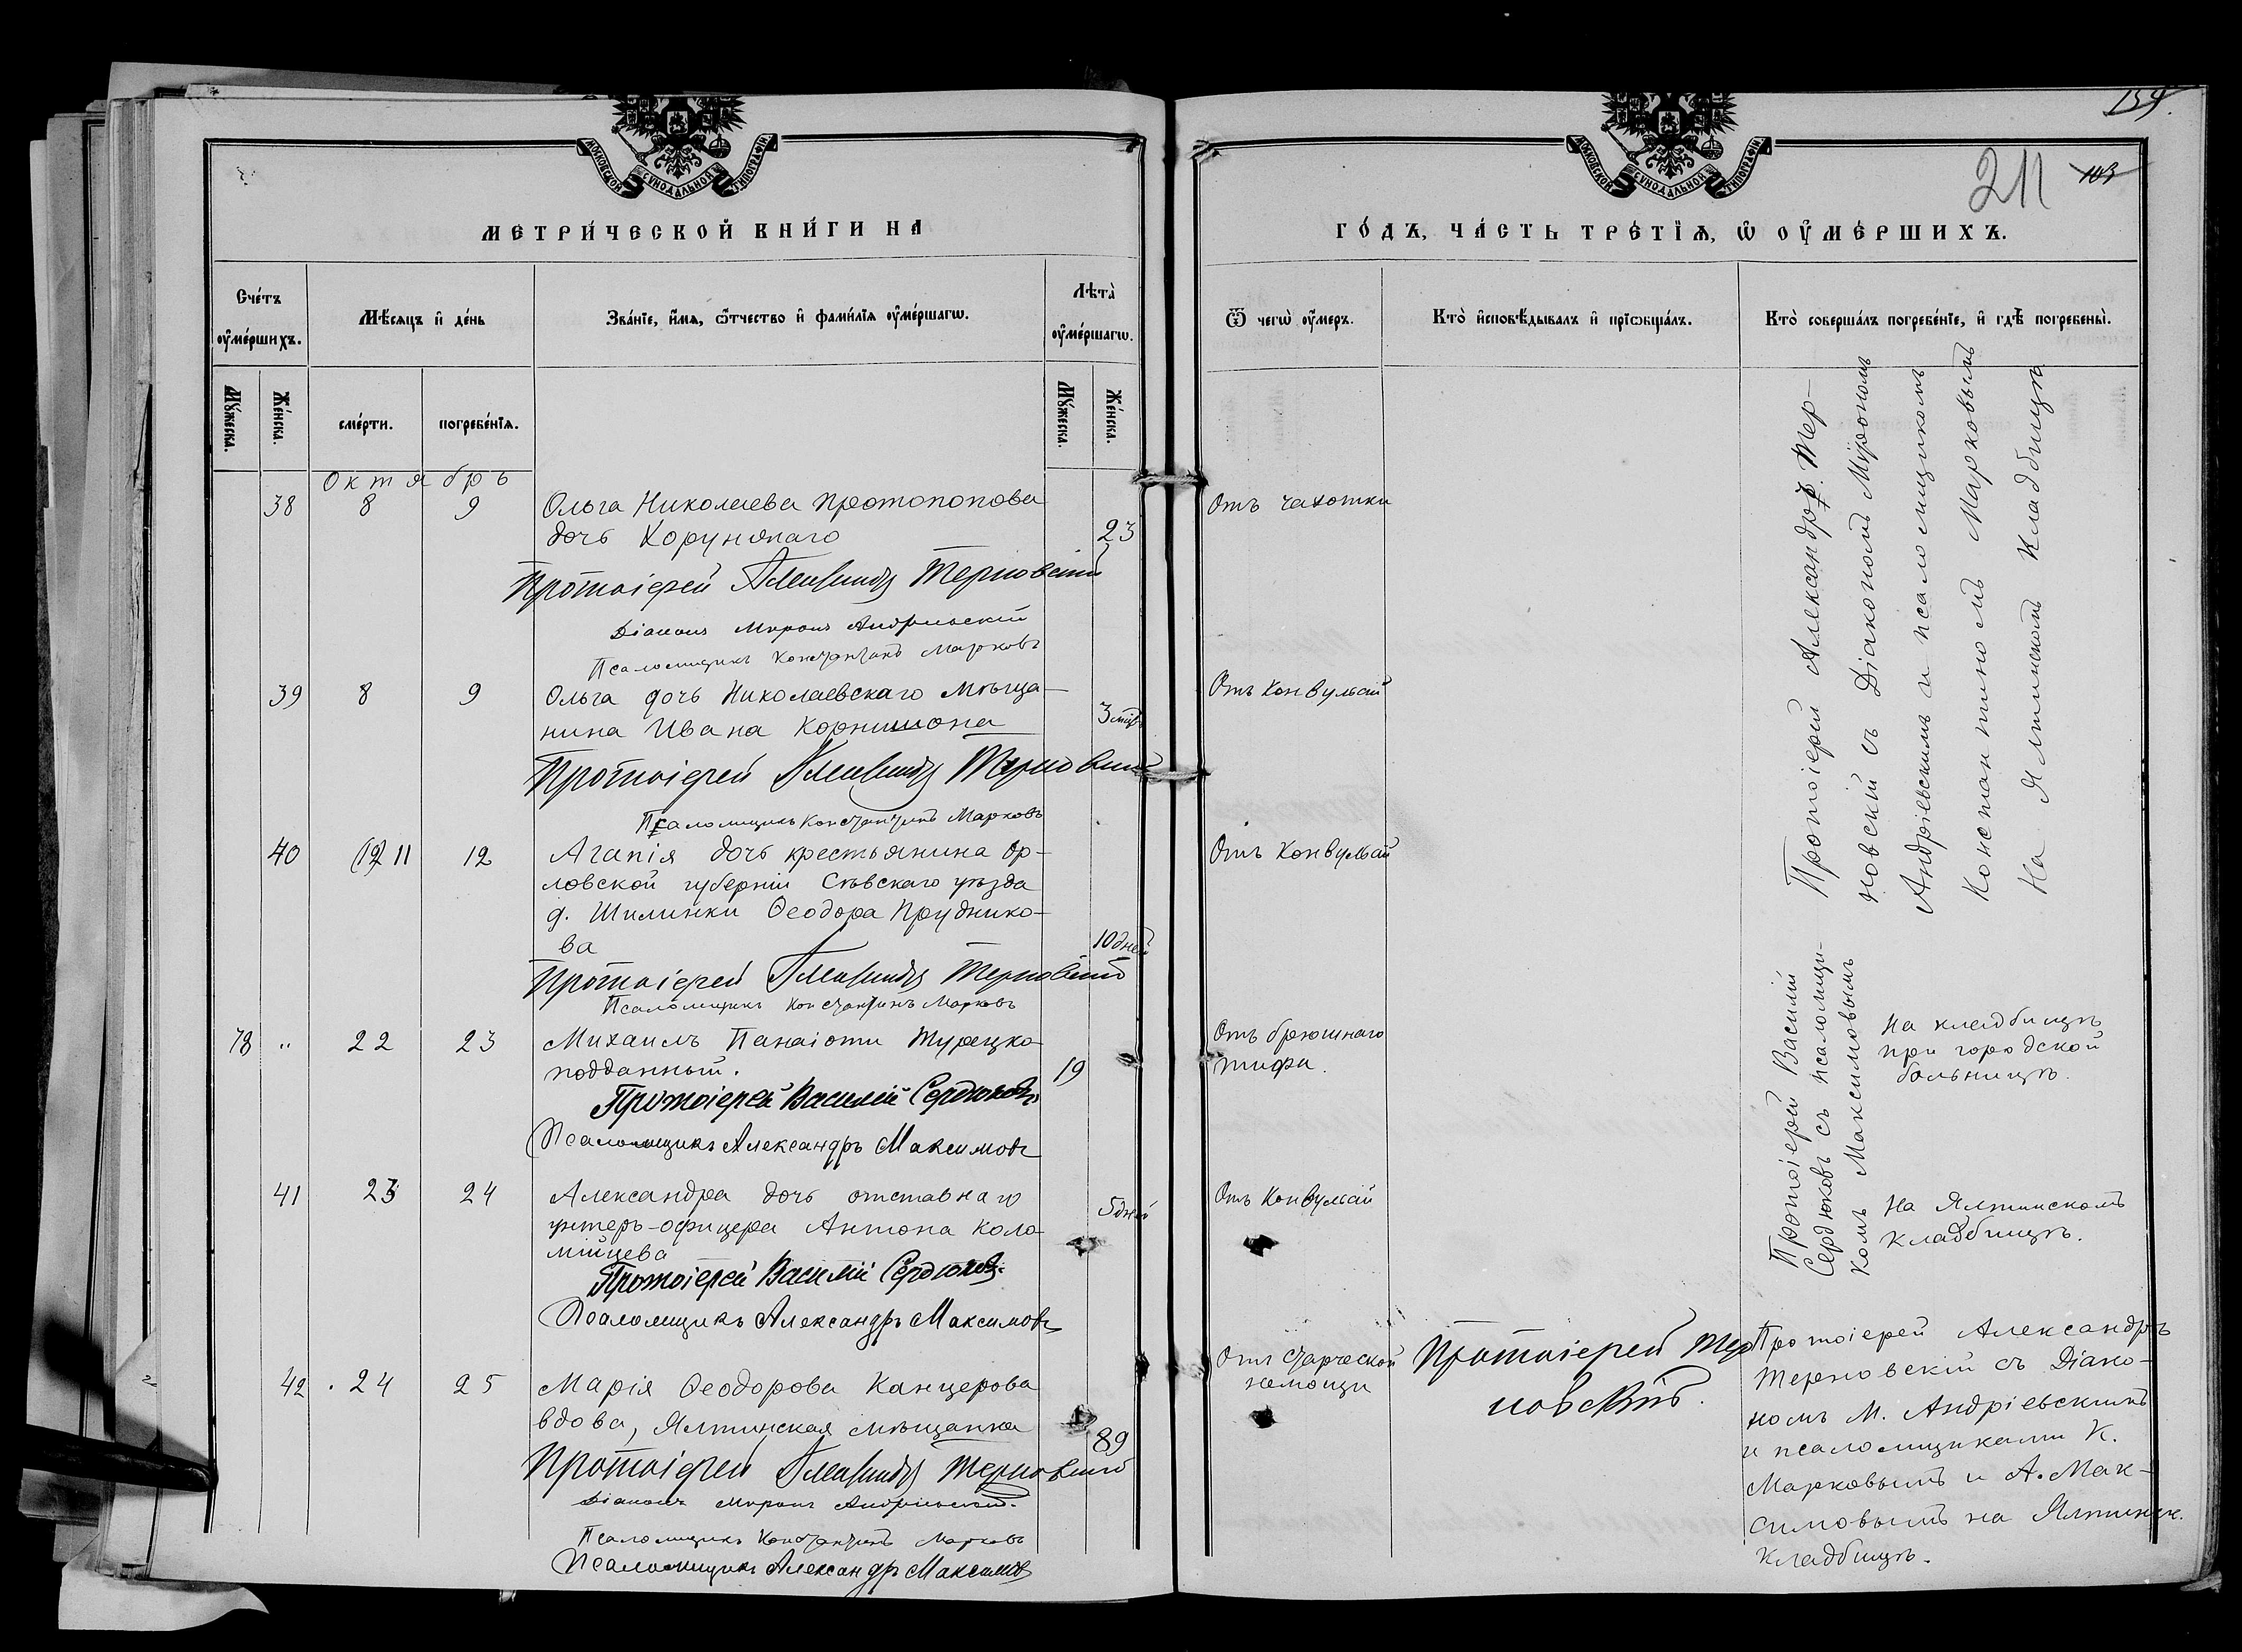 МОСКОВСКОЙ СѴНОДАЛЬНОЙ ТИПОГРАФІИ
МЕТРИ́ЧЕСКОЙ КНИ́ГИ НА
Сче́тъ ᲂу҆ме́ршихъ.
Мѣ́сяцъ и҆ де́нь
Зва́нїе, и҆́мѧ, ѻ҆́тчество и҆ фами́лїѧ ᲂу҆ме́ршагѡ.
Лѣ́та ᲂу҆ме́ршагѡ.
Мꙋ́жеска.
Же́нска.
сме́рти.
погребе́нїѧ.
Мꙋ́жеска.
Же́нска.
Октябрь
38 8 9 Ольга Николаева Протопопова
дочь 23
Протоіерей Александръ Терновскій
Діаконъ Миронъ Андріевскій
Псаломщикъ Константинъ Марковъ
39 8 9 Ольга дочь Николаевскаго мѣща-
нина Ивана Корнишона 3 мѣс
Протоіерей Александръ Терновскій
Псаломщикъ Константинъ Марковъ
40 (12) 11 12 Агапія дочь крестьянина Ор-
ловской губерніи Сѣвскаго уѣзда
д. Шилинки Ѳеодора Пруднико-
ва 10 дней
Протоіерей Александръ Терновскій
Псаломщикъ Константинъ Марковъ
78 „ 22 23 Михаилъ Панаіоти Турецко-
подданный. 19
Протоіерей Василій Сердюковъ
Псаломщикъ Александръ Максимовъ
41 23 24 Александра дочь отставнаго
унтеръ-офицера Антона Коло- 5 дней
мійцева
Протоіерей Василій Сердюковъ
Псаломщикъ Александръ Максимовъ
42 . 24 25 Марія Ѳеодорова Канцерова
вдова, Ялтинская мѣщанка 89
Протоіерей Александръ Терновскій
Діаконъ Миронъ Андріевскій.
Псаломщикъ Константинъ Марковъ
Псаломщикъ Александръ Максимовъ
159.
211 103
МОСКОВСКОЙ СѴНОДАЛЬНОЙ ТИПОГРАФІИ
ГО́ДЪ, ЧА́СТЬ ТРЕ́ТЇѦ, Ѡ҆ ОУ҆МЕ́РШИХЪ.
Ѿ чегѡ̀ ᲂу҆́меръ.
Кто̀ и҆сповѣ́дывалъ и҆ прїѡбща́лъ.
Кто̀ соверша́лъ погребе́нїе, и҆ гдѣ̀ погребены̀.
Отъ чахотки
Отъ конвульсій
Отъ конвульсій
Отъ брюшнаго
тифа.
Отъ конвульсій
Отъ старческой
немощи
Протоіерей Тер
новскій.
Протоіерей Александръ Тер-
новскій съ Діакономъ Мѵрономъ
Андріевскимъ и псаломщикомъ
Константиномъ Марковымъ
На Ялтинскомъ кладбищѣ
Протоіерей Василій
Сердюковъ съ псаломщи-
комъ Максимовымъ
На кладбищѣ
при городской
больницѣ.
На Ялтинскомъ
кладбищѣ.
Протоіерей Александръ
Терновскій съ Діако-
номъ М. Андріевскимъ
и псаломщиками К.
Марковымъ и А. Мак-
симовымъ на Ялтинск.
кладбищѣ.